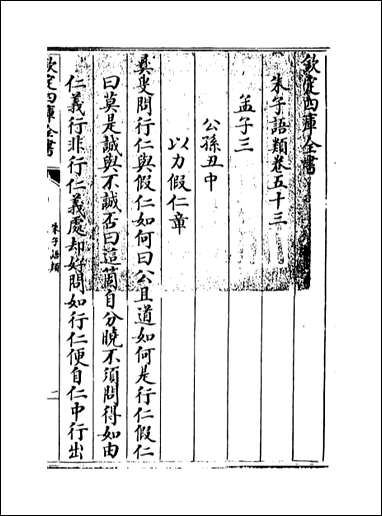 欽定四庫全書
朱子語類卷五十三
孟子三
公孫丑中
以力假仁章
彛叟問行仁與假仁如何曰公且道如何是行仁假仁
曰莫是誠與不誠否曰這箇自分曉不須問得如由
仁義行非行仁義處却好問如行仁便自仁中行出
欽定四庫全書
朱子語類